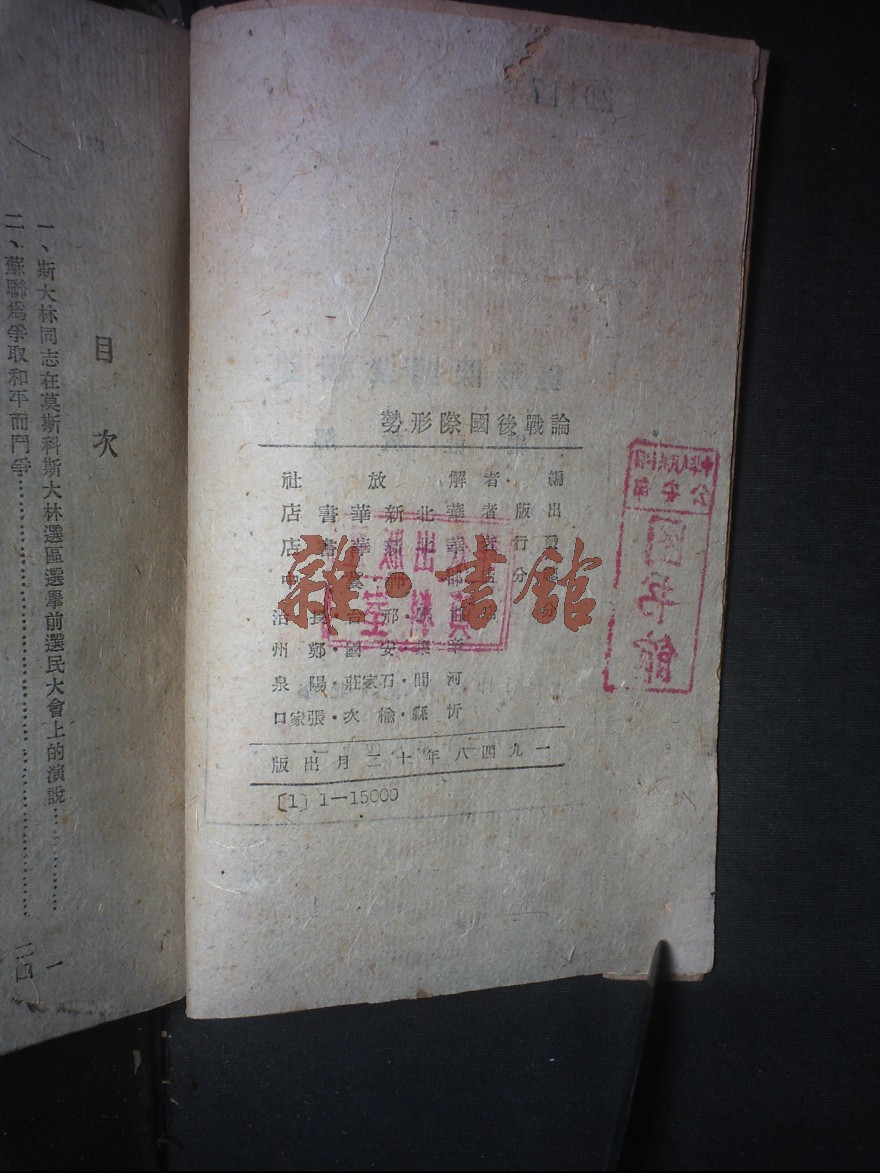 論戰後國際形勢
編者·解放社
出版者華北新華書店
發行者華北新華書店
河間·石家莊·陽泉
忻縣·榆次·張家口
一九四八年十二月出版
[1] 1—15000
目次
一、斯大林同志在莫斯科斯大林選區選舉前選民大會上的演說……………一
二、蘇聯爲爭取和平而鬥爭……………二四
中華人民共和國
公安部
图书館
雜·書館